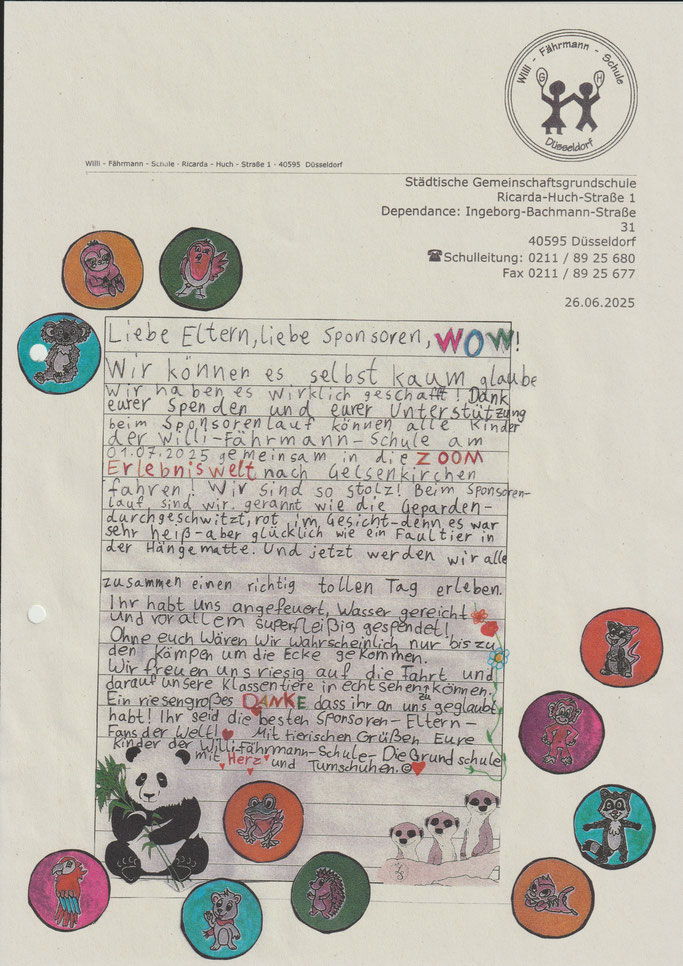 Willi - Fährmann - Schule
G H
Düsseldorf
Willi - Fährmann - Schule - Ricarda - Huch - Straße 1 - 40595 Düsseldorf
Städtische Gemeinschaftsgrundschule
Ricarda-Huch-Straße 1
Dependance: Ingeborg-Bachmann-Straße
31
40595 Düsseldorf
☎Schulleitung: 0211 / 89 25 680
Fax 0211 / 89 25 677
26.06.2025
Liebe Eltern, liebe Sponsoren, WOW!
Wir können es selbst kaum glaube
Wir haben es wirklich geschafft! Dank
eurer Spenden und eurer Unterstützung
beim Sponsorenlauf können alle Kinder
der Willi-Fährmann-Schule am
01.07.2025 gemeinsam in die ZOOM
Erlebniswelt nach Gelsenkirchen
fahren! Wir sind so stolz! Beim Sponsoren-
lauf sind wir gerannt wie die Geparden-
durchgeschwitzt, rot im Gesicht-denn es war
sehr heiß-aber glücklich wie ein Faultier in
der Hängematte. Und jetzt werden wir alle
zusammen einen richtig tollen Tag erleben.
Ihr habt uns angefeuert, Wasser gereicht
und vor allem superfleißig gespendet!
Ohne euch Wären Wir wahrscheinlich nur bis zu
den Kämpen um die Ecke gekommen.
Wir freuen uns riesig auf die Fahrt und
darauf unsere Klassentiere in echt sehen zu können.
Ein riesengroßes DANKE dass ihr an uns geglaubt
habt! Ihr seid die besten Sponsoren-Eltern-
Fans der Welt! Mit tierischen Grüßen Eure
Kinder der Willi-Fährmann-Schule-Die Grundschule
mit Herz und Turnschuhen.